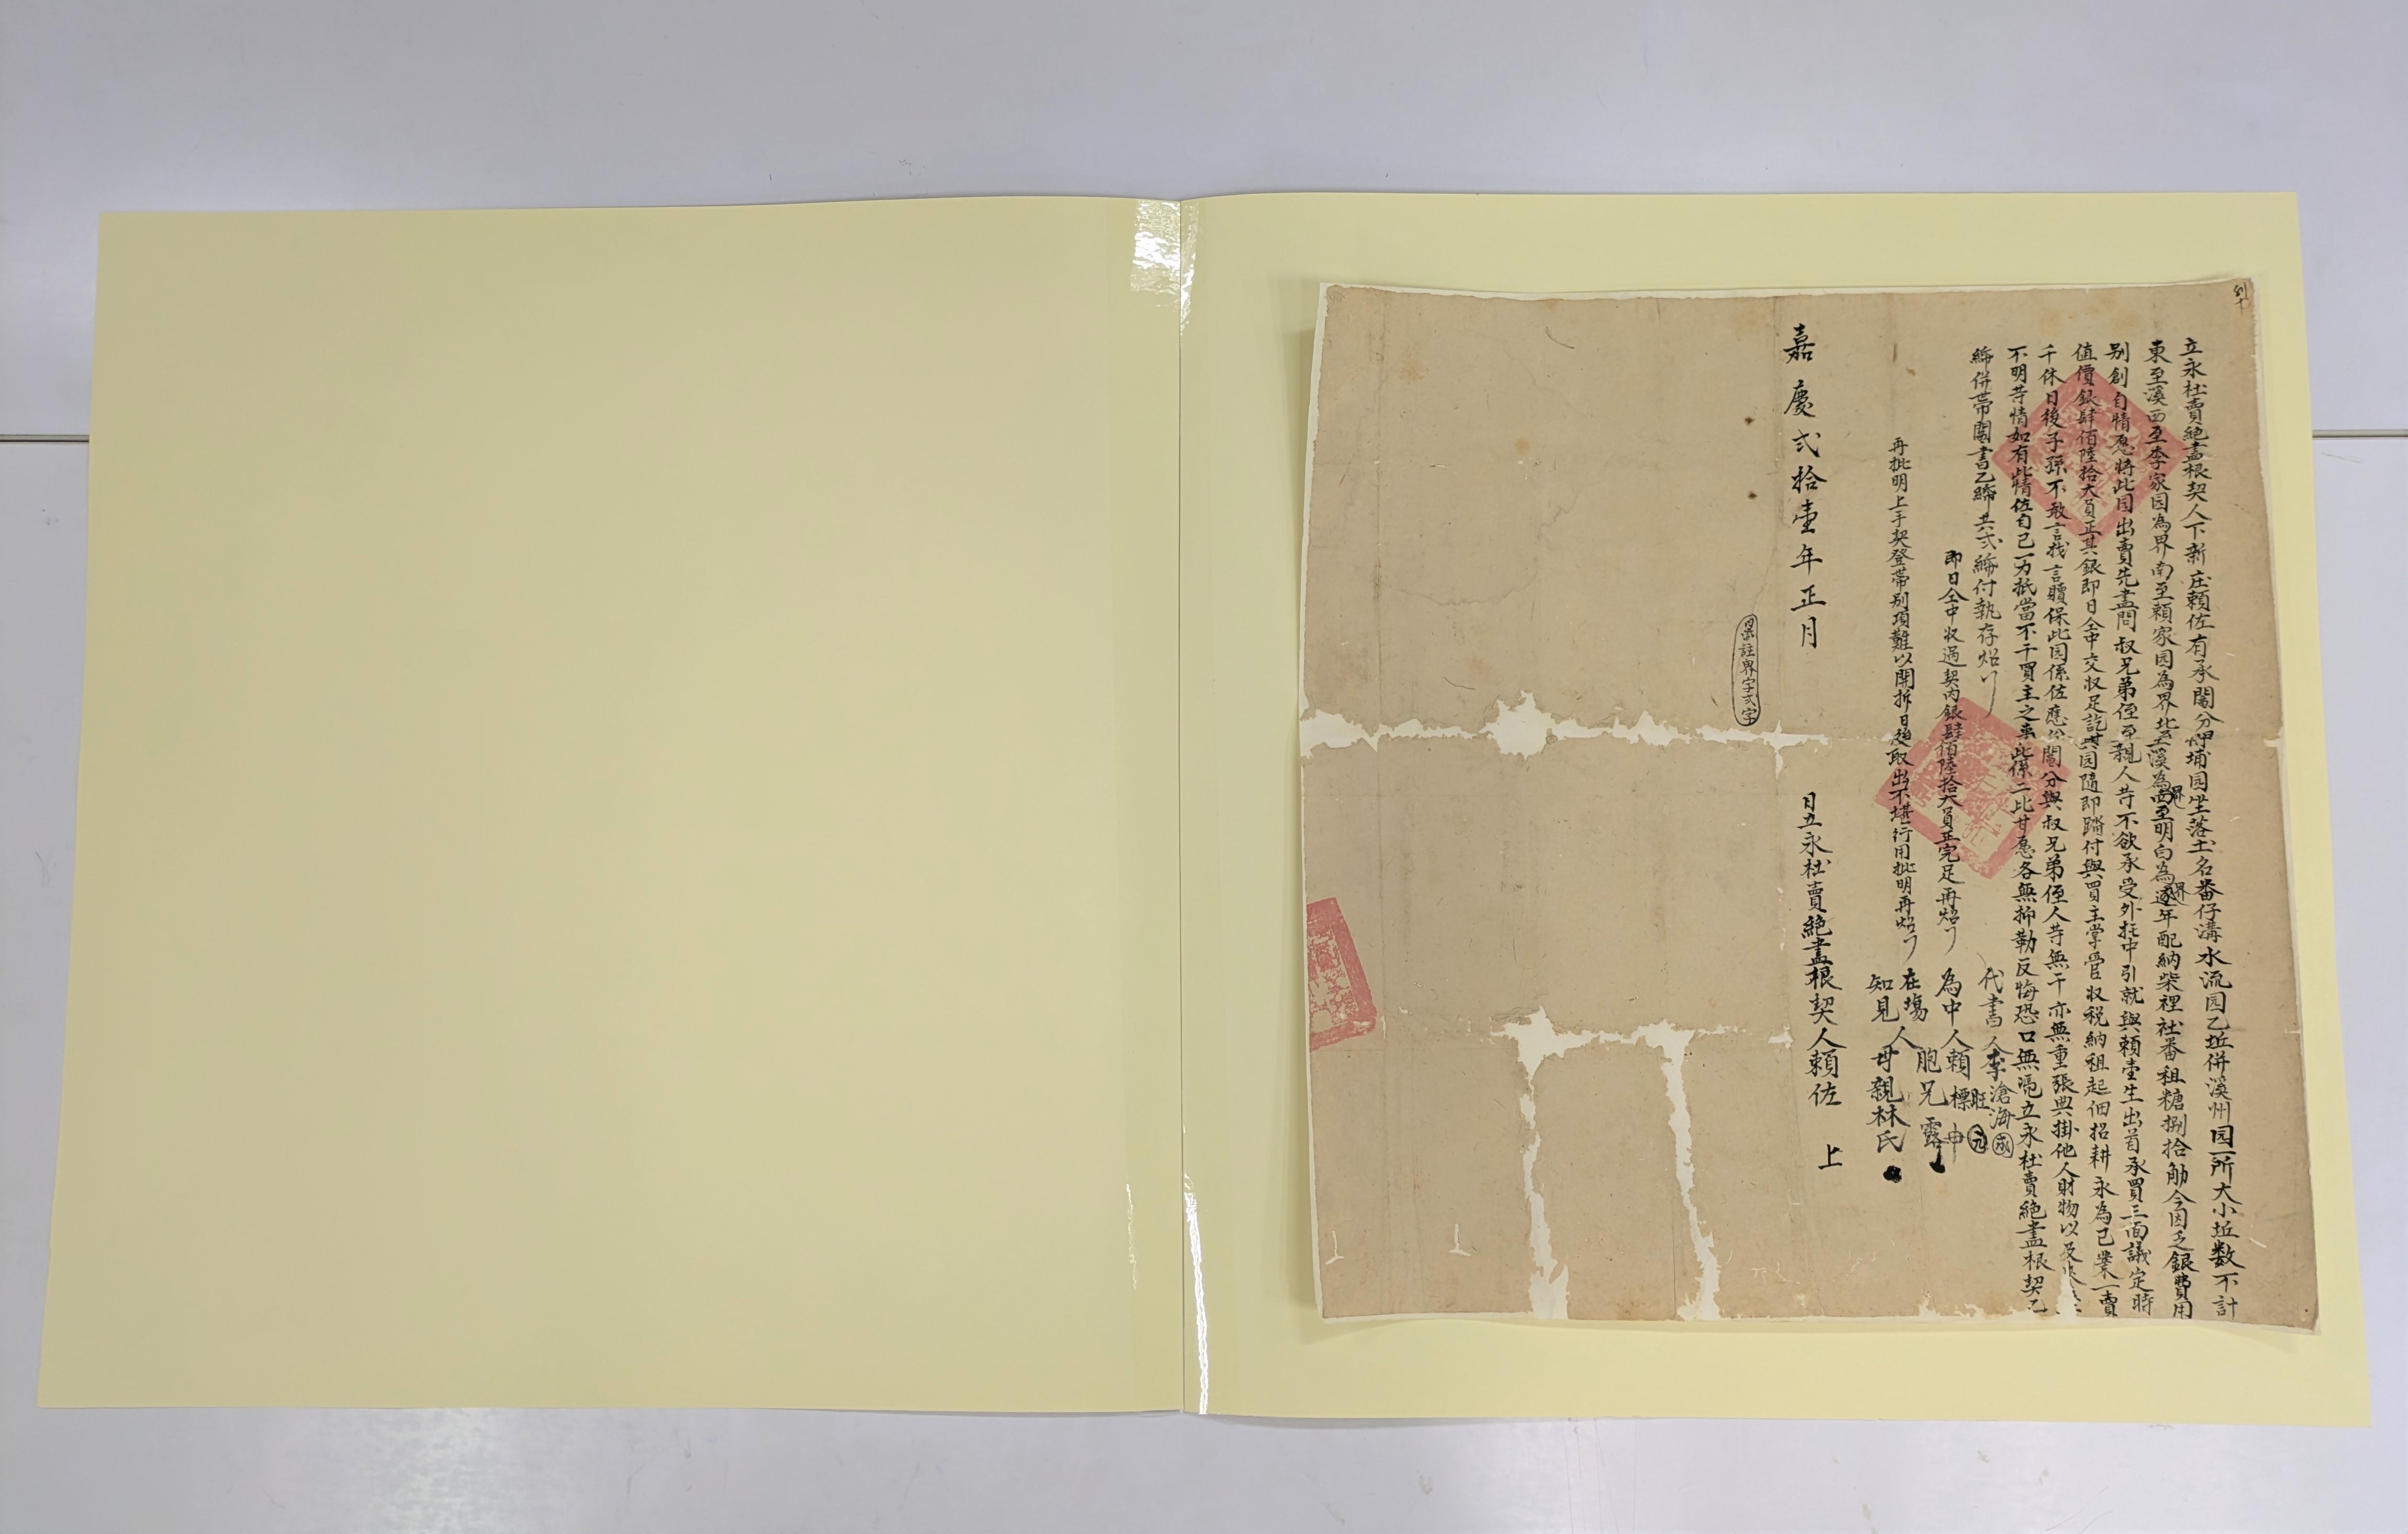 立永杜賣絕盡根契人下新庄賴佐有承鬮分埔园坐落土名番仔溝水流园乙坵併溪州园一所大小坵数不計
東至溪西至李家园為界南至賴家园為界北至溪為界四至明白為界逐年配納柴裡社番租糖捌拾觔今因乏銀費用
别創自情愿將此园出賣先盡問叔兄弟侄至親人等不欲承受外托中引就與賴壹生出首承買三面議定時
值價銀肆佰陸拾大員正其銀即日仝中交收足訖其园隨即踏付與買主掌管収税納租起佃招耕永為己業一賣
千休日後子孫不敢言找言贖保此园係佐應份鬮分與叔兄弟侄人等無干亦無重張典掛他人財物以及
不明等情如有此情佐自己一力抵當不干買主之事此係二比甘愿各無抑勒反悔恐口無憑立永杜賣絕盡根契乙
紙併帶鬮書乙紙共弍紙付執存炤
即日仝中收過契內銀肆佰陸拾大員正完足再炤
再批明上手契登帶别項難以開拆日後取出不堪行用批明再炤
代書人李滄海
為中人賴標旺申
在塲胞兄露
知見人母親林氏
嘉慶弍拾壹年正月 日立永杜賣絕盡根契人賴佐 上
註界字弍字